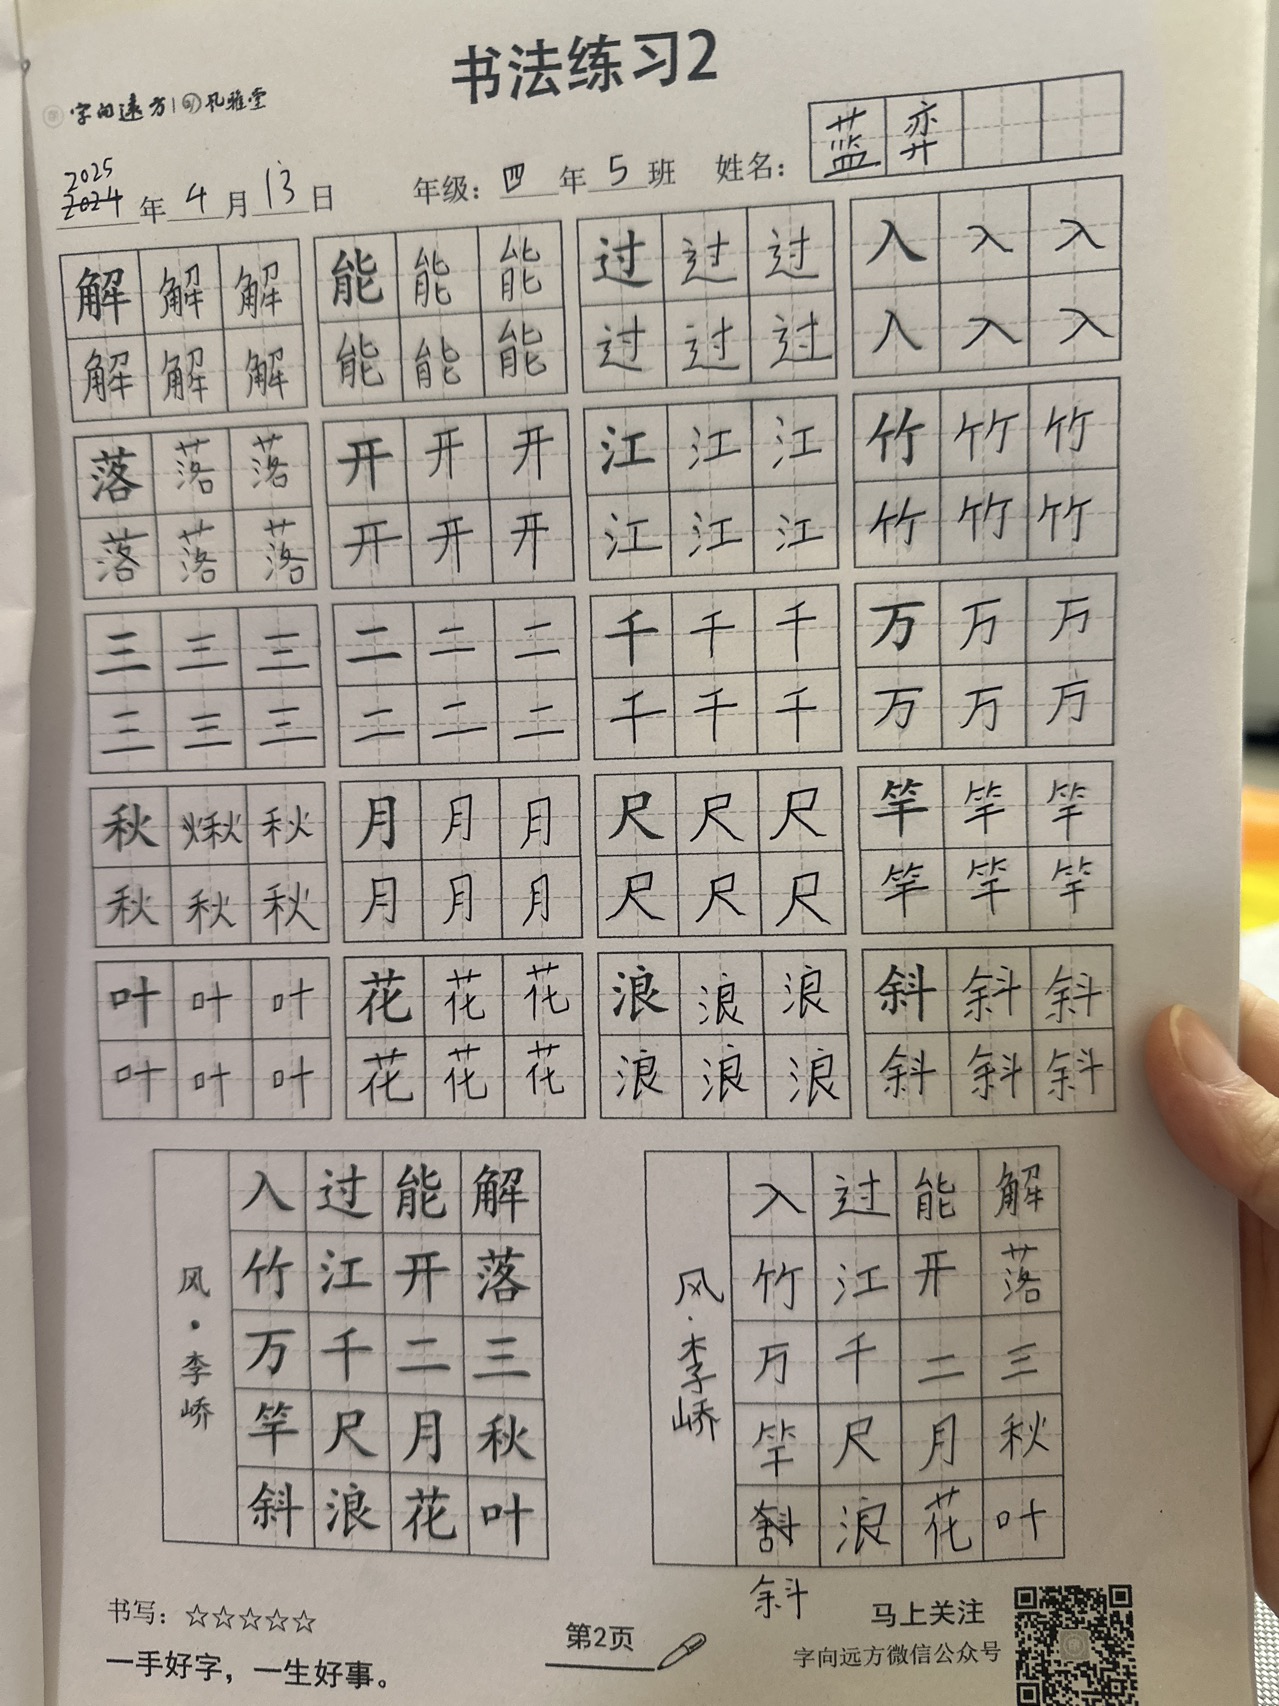 书法练习2
字向远方 风雅堂
2025
2024年4月13日 年级：四年5班 姓名：蓝弈
解解解 能能能 过过过 入入入
解解解 能能能 过过过 入入入
落落落 开开开 江江江 竹竹竹
落落落 开开开 江江江 竹竹竹
三三三 二二二 千千千 万万万
三三三 二二二 千千千 万万万
秋秋 月月月 尺尺尺 竿竿竿
秋秋秋 月月月 尺尺尺 竿竿竿
叶叶叶 花花花 浪浪浪 斜斜斜
叶叶叶 花花花 浪浪浪 斜斜斜
风·李峤
解落三秋叶
能开二月花
过江千尺浪
入竹万竿斜
风·李峤
解落三秋叶
能开二月花
过江千尺浪
入竹万竿
斜
书写：☆☆☆☆☆
一手好字，一生好事。
第2页
马上关注
字向远方微信公众号